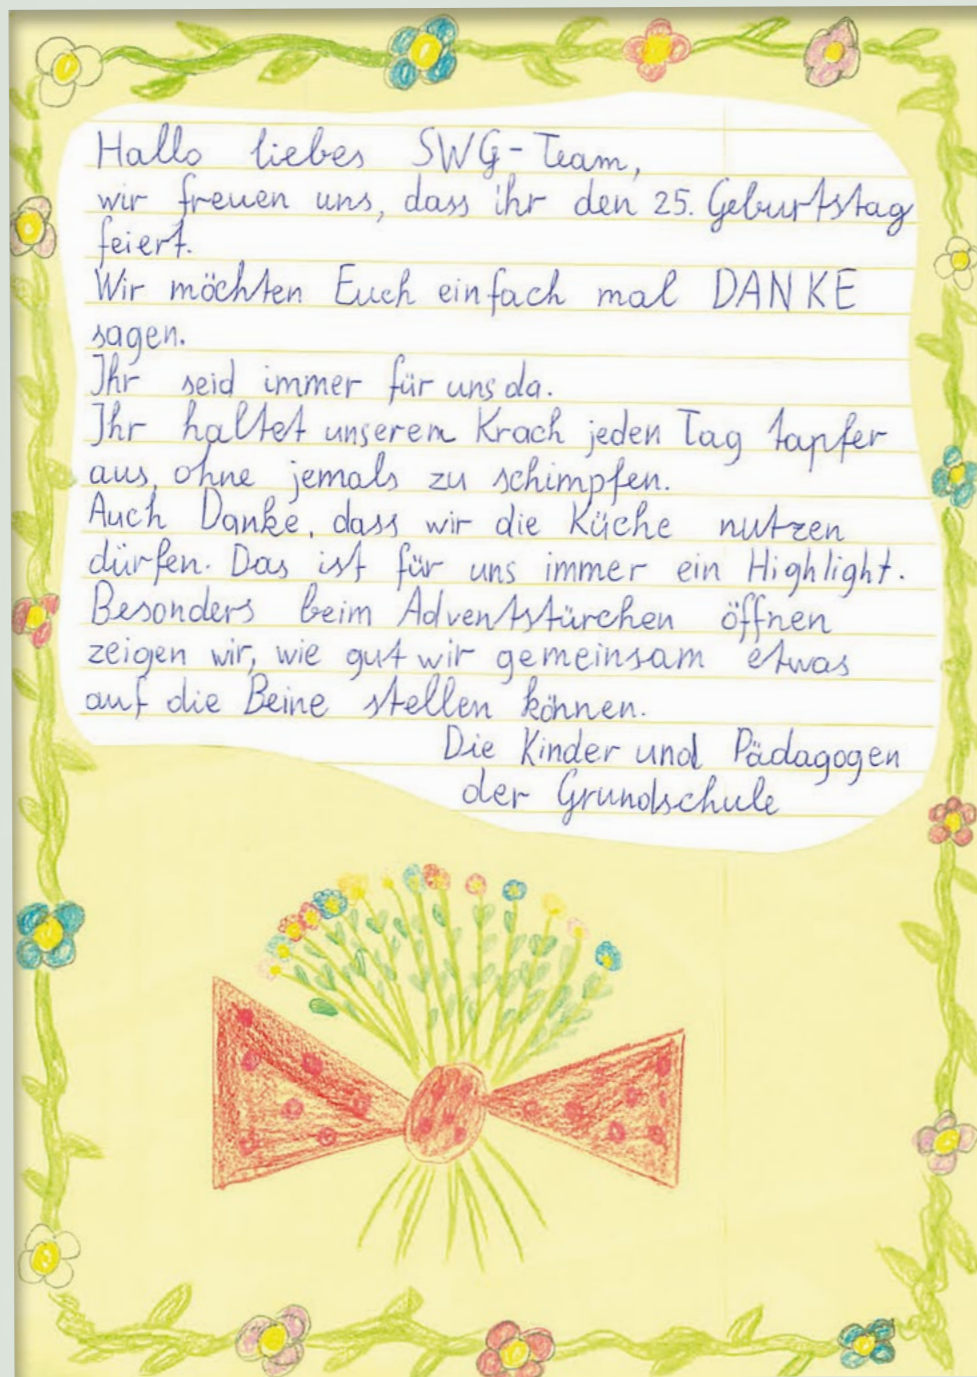 Hallo liebes SWG-Team,
wir freuen uns, dass ihr den 25. Geburtstag
feiert.
Wir möchten Euch einfach mal DANKE
sagen.
Ihr seid immer für uns da.
Ihr haltet unserem Krach jeden Tag tapfer
aus, ohne jemals zu schimpfen.
Auch Danke, dass wir die Küche nutzen
dürfen. Das ist für uns immer ein Highlight.
Besonders beim Adventstürchen öffnen
zeigen wir, wie gut wir gemeinsam etwas
auf die Beine stellen können.
Die Kinder und Pädagogen
der Grundschule